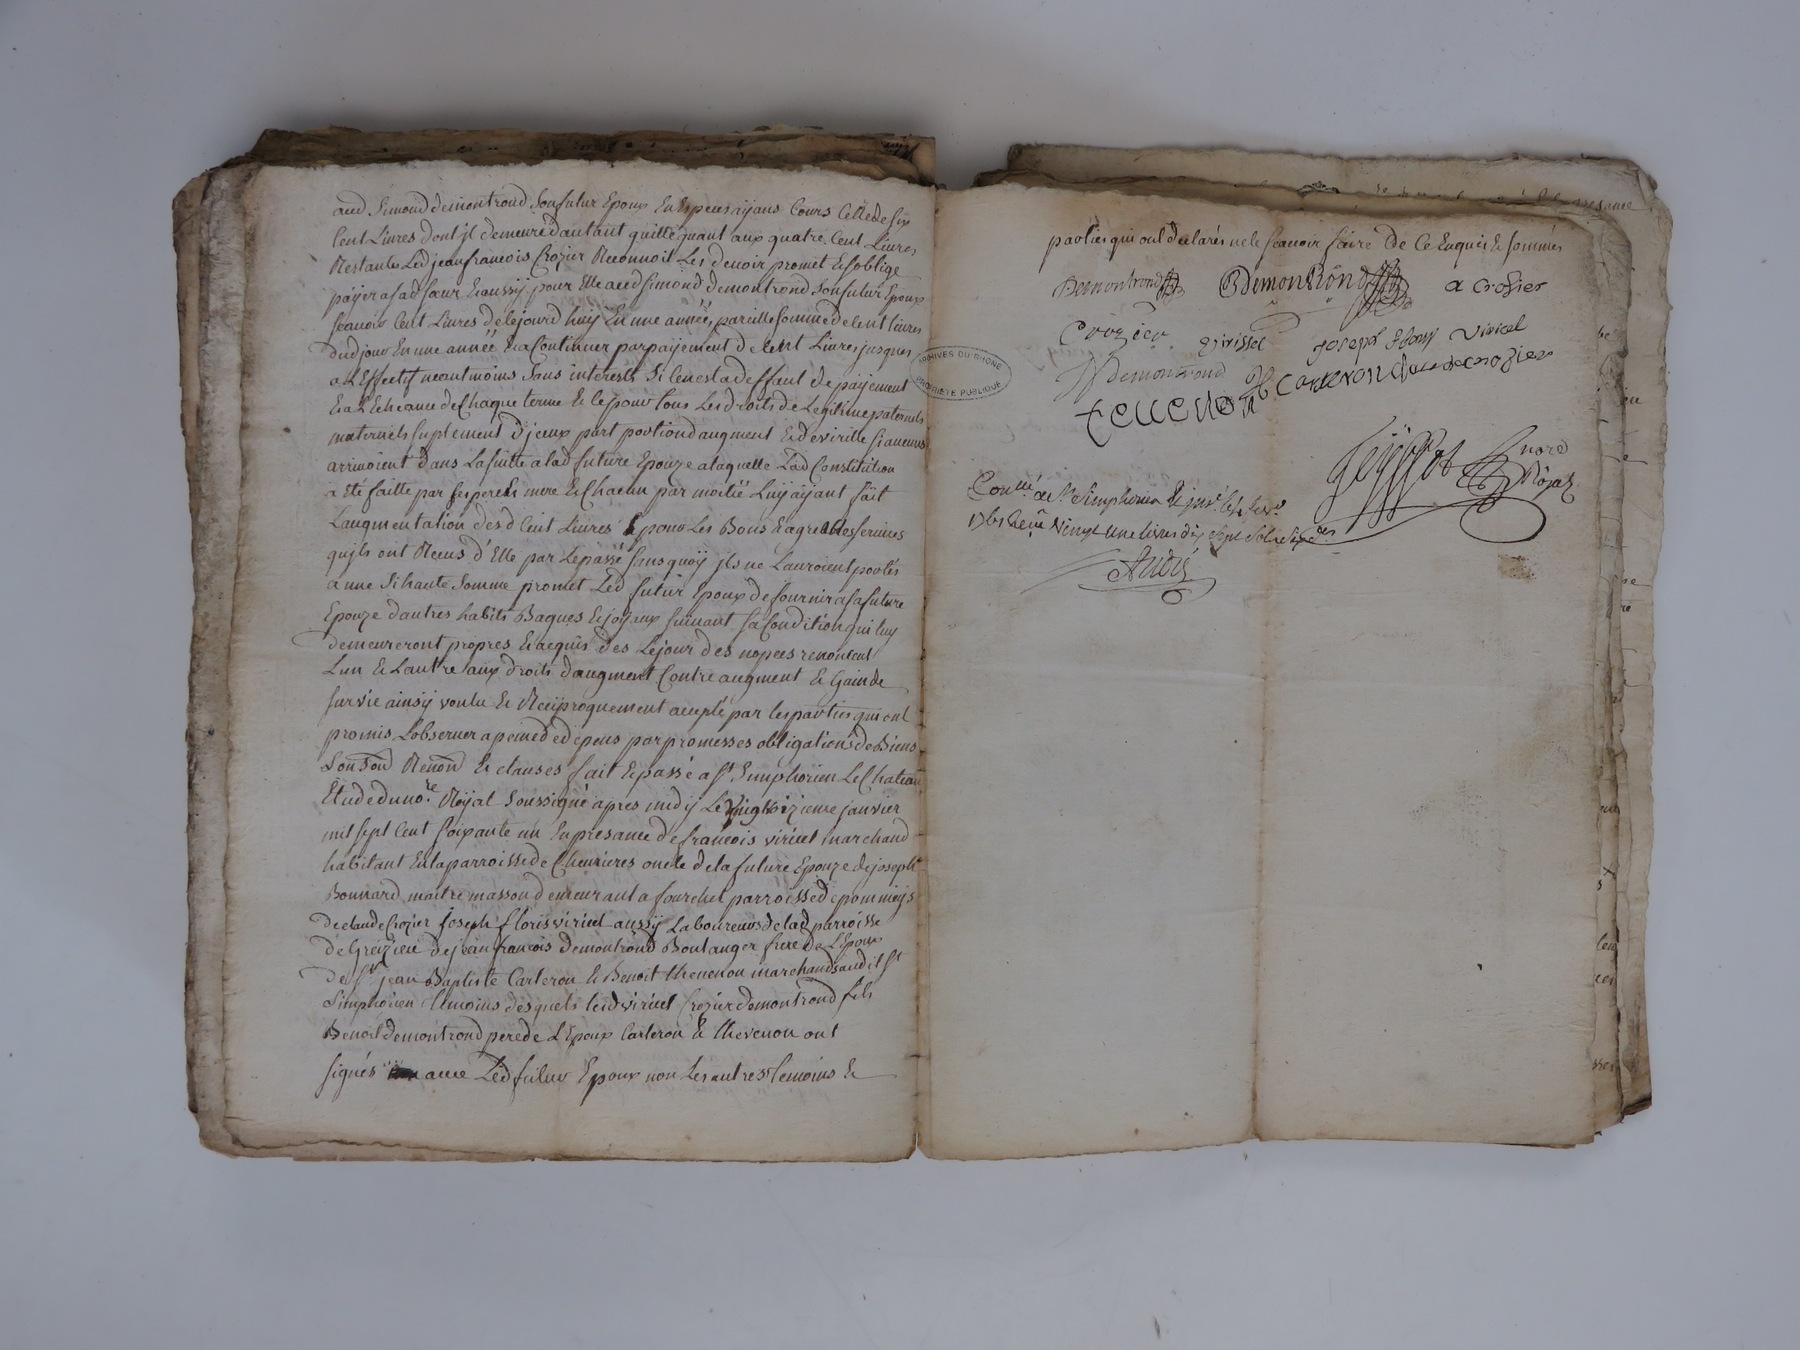 aud Simond demontrond son futur Epoux En Especes ayans Cours Cellede six
Cent Livres dont jl demeure dautant quitte quant aux quatre Cent Livres
Restantes Led jean francois Crozier Reconnoit Les devoir promet & soblige
païer a sad sœur & aussÿ pour Elle aud Simond demontrond son futur Epoux
scauoir Cent Livres de Cejourd huÿ En une année, pareille somme de Cent livres
dud jour En une année & a Continuer par païement de Cent Livres jusques
a L'Effectif neantmoins sans interests Si Ce nest a deffaut de païement
& a L'Echeance de Chaque terme & Ce pour tous Les droits de Legitime paternels
maternels suplement d'jceux part portion daugment & de virille si aucuns
arrivoient dans La suitte a lad future Epouze a laquelle Lad Constitution
a été faitte par ses pere & mere & Chacun par moitié Luÿ aÿant fait
Laugmentation desd Cent Livres & pour Les Bons & agreables services
qujls ont Receus d'Elle par Lepassé sans quoÿ jls ne Lauroient portés
a une si haute somme promet Led futur Epoux de fournir a sa future
Epouze dautres habits Bagues & joÿaux suivant sa Condition qui luy
demeureront propres & acquis des Lejour des nopces renoncent
Lun & Lautre aux droits daugment Contre augment & Gain de
survie ainsÿ voulu & Reciproquement accepté par les parties qui ont
promis Lobseruer a peine de depens par promesses obligations de Biens
Renon & clauses fait & passé a St Simphorien Le Chateau
Etude du nore Roÿal soussigné apres midÿ Le janvier
mil sept Cent soixante un En presance de francois viricel marchand
habitant En la parroisse de Chevrieres oncle dela future Epouze de joseph
Bonnard maitre masson demeurant a fourchet parroisse de pommeÿs
de claude Crozier joseph floris viricel aussÿ Laboureurs de lad parroisse
de Grezieu de jean francois demontrond Boulanger frere de L'Epoux
de Sr jean Baptiste Carteron & Benoit thevenon marchands audit St
Simphorien temoins desquels lesd viricel Crozier demontrond fils
Benoit demontrond pere de L'Epoux Carteron & thevenon ont
signés avec Led futur Epoux non Les autres temoins &
parties qui ont declarés ne le scauoir faire de Ce Enquis & sommés
Demontrond BDemonRond a Crosier
Crozier virissel joseph flory viricel
Demontrond
Carteron claude crozier
tevenon
Teyssot nore
Roÿal
Conlé a St Simphorien le
1761 Recu vingt une livres dix sept sols six den
Andié
ARCHIVES DU RHONE
PROPRIETE PUBLIQUE